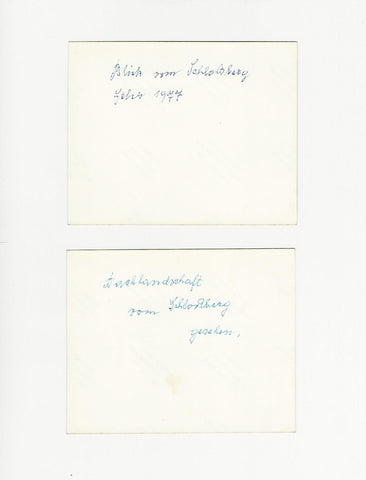 Blick vom Schloßberg
Febr 1977
Dachlandschaft
vom Schloßberg
gesehen.